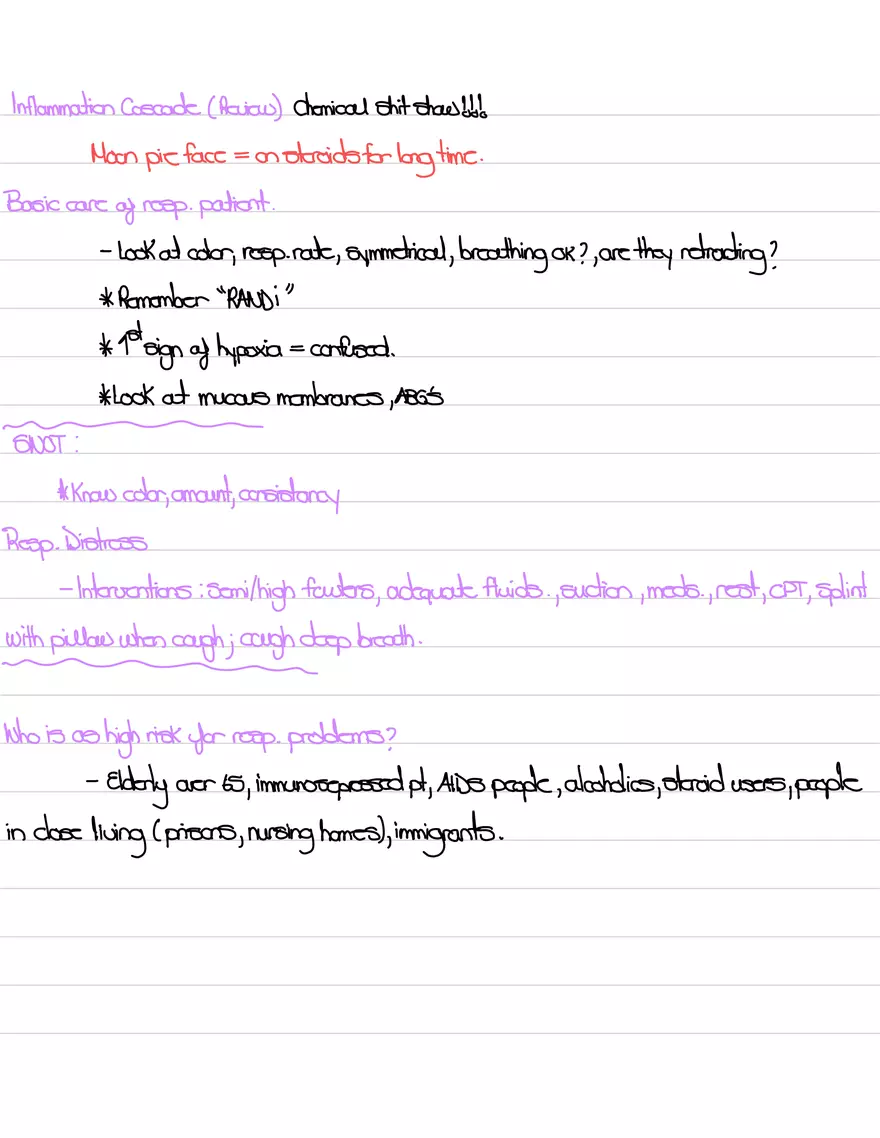 Inflammation Cascade (Review) chemical shit show!!!
Moon pie face = on steroids for long time.
Basic care of resp. patient.
- Look at color, resp. rate, symmetrical, breathing ok?, are they retracting?
* Remember "RANDi"
* 1st sign of hypoxia = confused.
* Look at mucous membranes, ABG's
SNOT:
* Know color, amount, consistancy
Resp. Distress
- Interventions: Semi/high fowlers, adequate fluids., suction, meds., rest, CPT, splint
with pillow when cough; cough deep breath.
Who is as high risk for resp. problems?
- Elderly over 65, immunorepressed pt, AIDS people, alcoholics, steroid users, people
in close living (prisons, nursing homes), immigrants.